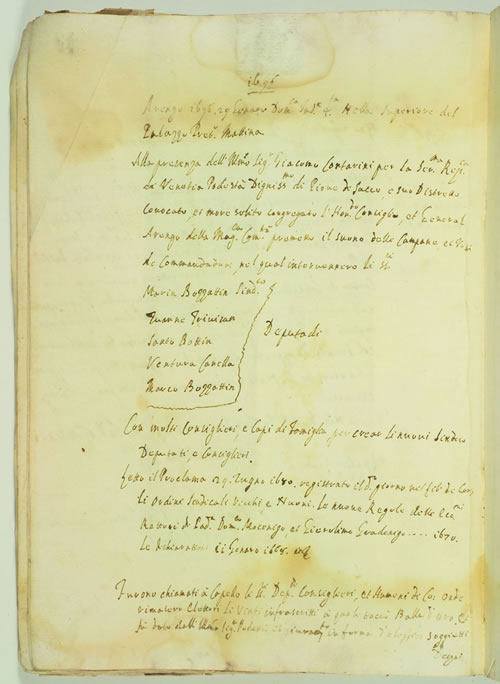 1696
Arengo 1696. 29 Genaro Dom.ca Ind.e 4.ta Nella superiore del
Palazzo Pret.o Mattina
Alla presenza dell'Ill.mo Sig.r Giacomo Contarini per la Ser.ma Rep.ca
di Venetia Podestà Digniss.mo di Piove di Sacco, e suo Distretto
Convocato, et more solito congregato l'Hon.do Consiglio, et General
Arengo della Mag.ca Com.tà premesso il suono delle Campane et voci
de Commandadori, nel qual intervennero li SS.ri
Maria Bozzattin Sind.co
Zuanne Trivisan
Santo Bottin
Ventura Canella
Marco Bozzattin
Deputadi
Con molti Consiglieri, e Capi di Famiglia per crear li nuovi Sindico
Deputati, e Consiglieri.
Letto il Proclama 29. Zugno 1680. registrato il d.o giorno nel
Li Ordini Sindicali Vecchi, e Nuovi. Le nuove Regole delli
Rettori di Pad.a Dom.co Mocenigo, et Gierolimo Gradenigo .... 1670.
Le di Genaro 1668.
Furono chiamati à Capello li SS.ri Dep.ti Consiglieri, et Huomeni de Com.
rimasero eletti li Venti infrascritti à quali toccò Balla d'oro, et
fù dato dall'Ill.mo Sig.r Podestà il giuram.to in forma d'elegger soggietti